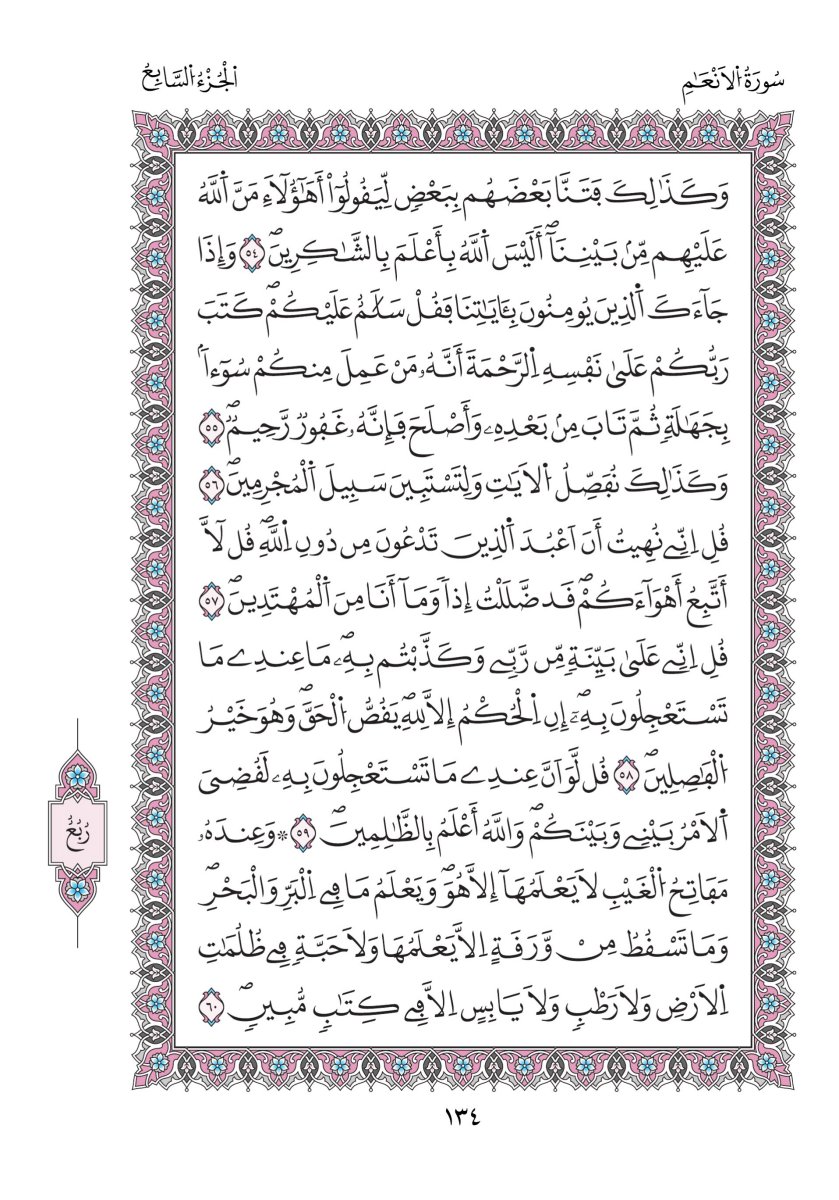 سُورَةُ الَانْعَٰمِ
الْجُزْءُ السَّابِعُ
وَكَذَٰلِكَ فَتَنَّا بَعْضَهُم بِبَعْضٖ لِّيَقُولُوٓاْ أَهَٰٓؤُلَآءِ مَنَّ اَ۬للَّهُ
عَلَيْهِم مِّنۢ بَيْنِنَآۖ أَلَيْسَ اَ۬للَّهُ بِأَعْلَمَ بِالشَّٰكِرِينَۖ ٥٤ وَإِذَا
جَآءَكَ اَ۬لذِينَ يُومِنُونَ بِـَٔايَٰتِنَا فَقُلْ سَلَٰمٌ عَلَيْكُمْۖ كَتَبَ
رَبُّكُمْ عَلَىٰ نَفْسِهِ اِ۬لرَّحْمَةَ أَنَّهُۥ مَنْ عَمِلَ مِنكُمْ سُوٓءاَۢ
بِجَهَٰلَةٖ ثُمَّ تَابَ مِنۢ بَعْدِهِۦ وَأَصْلَحَ فَإِنَّهُۥ غَفُورٞ رَّحِيمٞۖ ٥٥
وَكَذَٰلِكَ نُفَصِّلُ اُ۬لَايَٰتِ وَلِتَسْتَبِينَ سَبِيلَ اَ۬لْمُجْرِمِينَۖ ٥٦
قُلِ اِنِّے نُهِيتُ أَنَ اَعْبُدَ اَ۬لذِينَ تَدْعُونَ مِن دُونِ اِ۬للَّهِۖ قُل لَّآ
أَتَّبِعُ أَهْوَآءَكُمْۖ قَد ضَّلَلْتُ إِذاٗ وَمَآ أَنَا مِنَ اَ۬لْمُهْتَدِينَۖ ٥٧
قُلِ اِنِّے عَلَىٰ بَيِّنَةٖ مِّن رَّبِّے وَكَذَّبْتُم بِهِۦۖ مَا عِندِے مَا
تَسْتَعْجِلُونَ بِهِۦٓۖ إِنِ اِ۬لْحُكْمُ إِلَّا لِلهِۖ يَقُصُّ اُ۬لْحَقَّۖ وَهُوَ خَيْرُ
اُ۬لْفَٰصِلِينَۖ ٥٨ قُل لَّوَ اَنَّ عِندِے مَا تَسْتَعْجِلُونَ بِهِۦ لَقُضِيَ
اَ۬لَامْرُ بَيْنِے وَبَيْنَكُمْۖ وَاللَّهُ أَعْلَمُ بِالظَّٰلِمِينَۖ ٥٩ ۞ وَعِندَهُۥ
مَفَاتِحُ اُ۬لْغَيْبِ لَا يَعْلَمُهَآ إِلَّا هُوَۖ وَيَعْلَمُ مَا فِے اِ۬لْبَرِّ وَالْبَحْرِۖ
وَمَا تَسْقُطُ مِنْ وَّرَقَةٍ اِلَّا يَعْلَمُهَا وَلَا حَبَّةٖ فِے ظُلُمَٰتِ
اِ۬لَارْضِ وَلَا رَطْبٖ وَلَا يَابِسٍ اِلَّا فِے كِتَٰبٖ مُّبِينٖۖ ٦٠
رُبُعُ
١٣٤